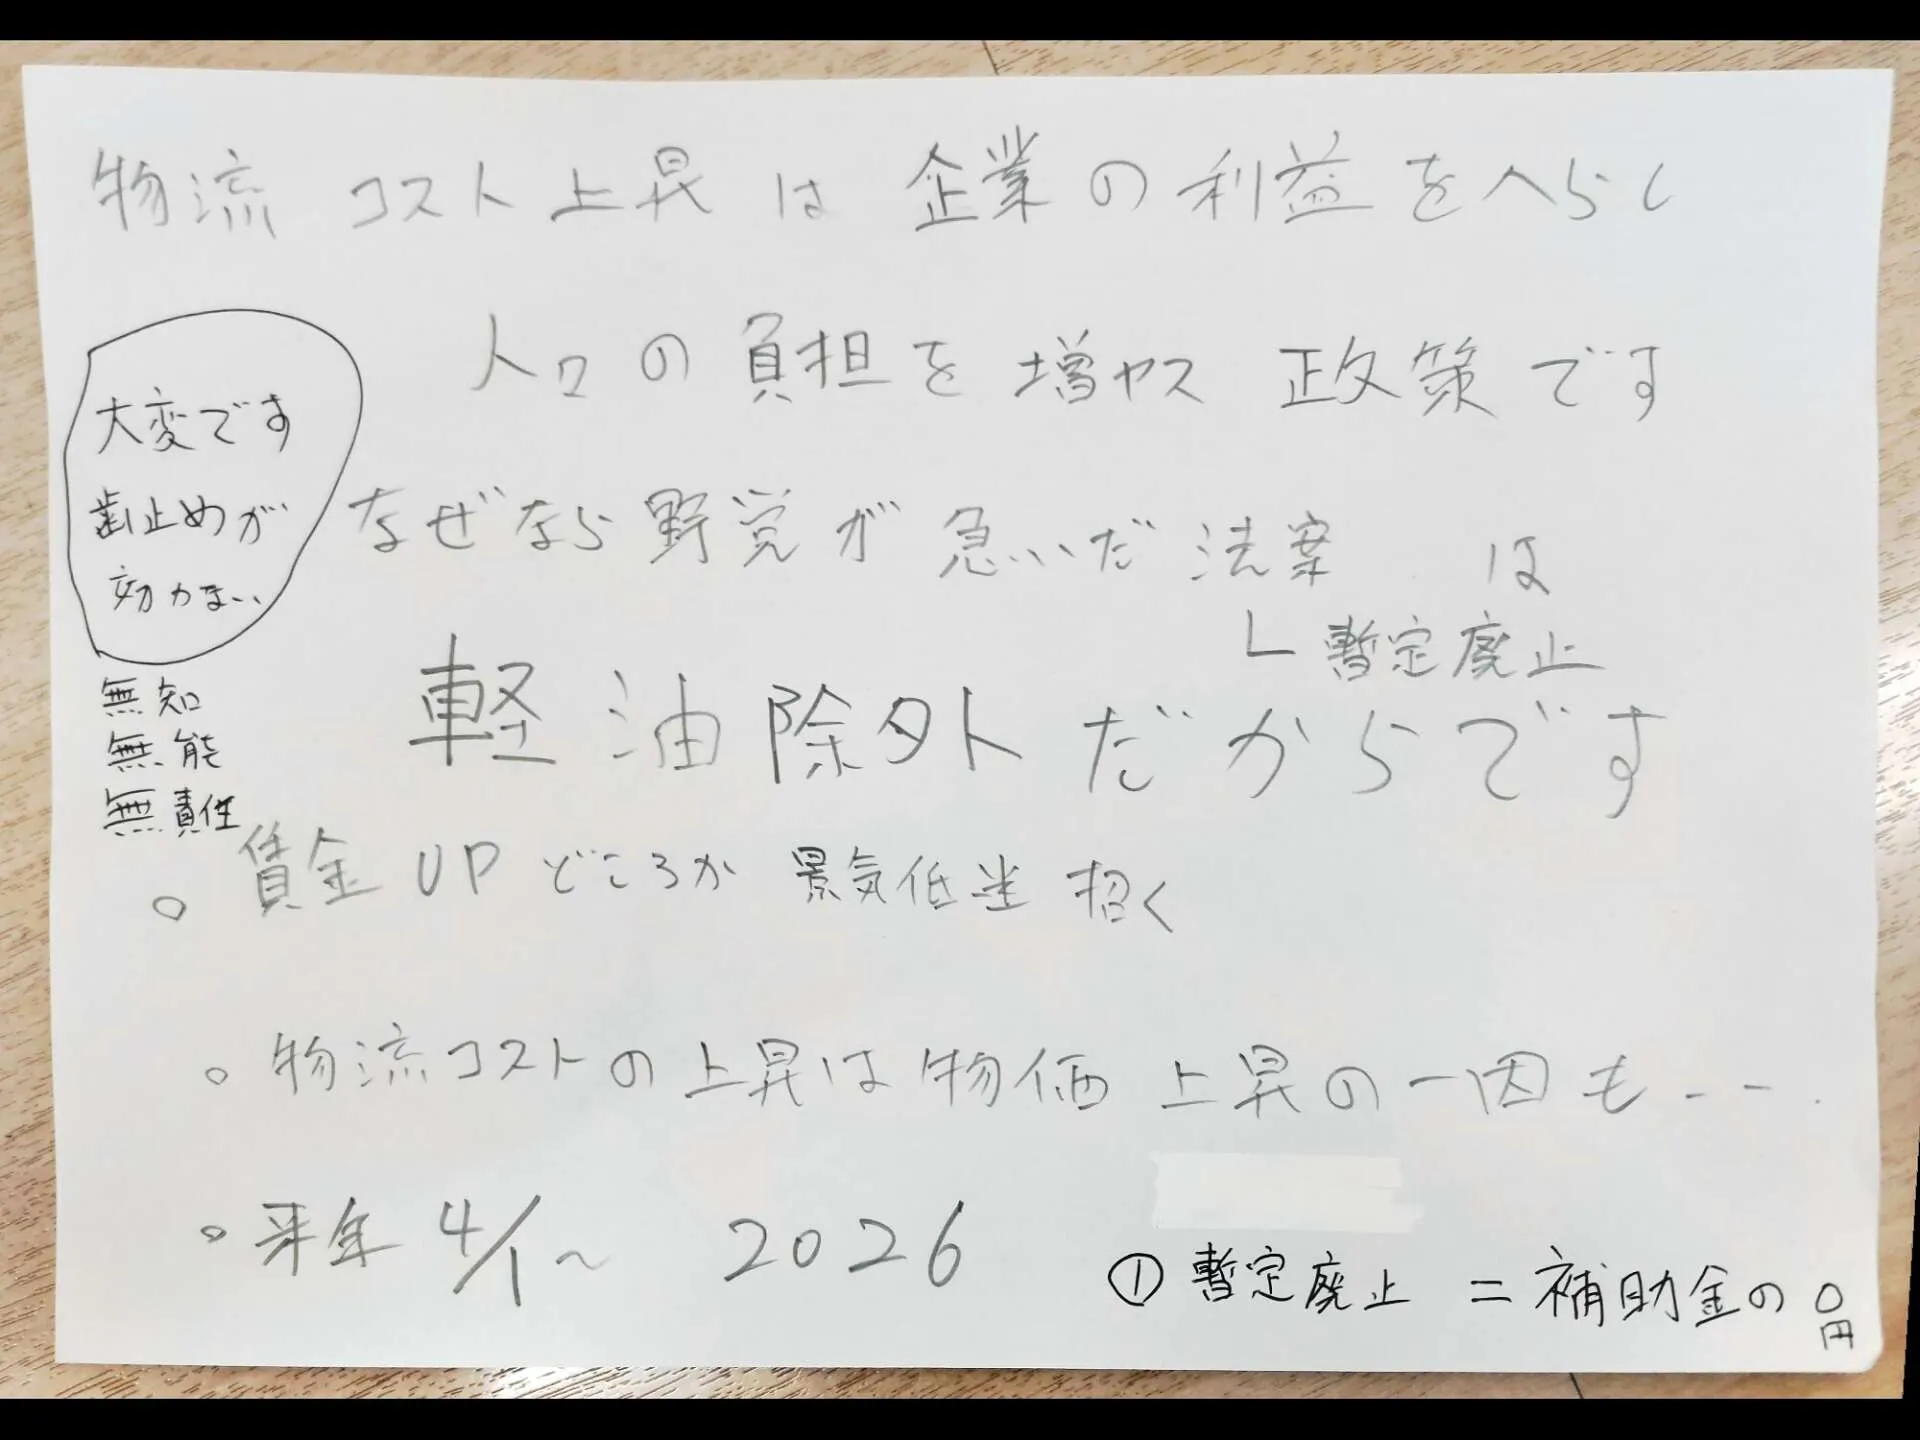 物流 コスト上昇 は 企業 の 利益 をへらし
人口 の 負担 を 増ヤス 政策 です
なぜなら 野党 が 急いだ 法案 は
└ 暫定 廃止
軽油除外だからです
大変です
歯止めが
効かない
無知
無能
無責任
○ 賃金 UP どころか 景気低迷 招く
○ 物流コストの上昇は物価 上昇の一因も---.
○ 来年 4/1~ 2026
① 暫定廃止 = 補助金の0円